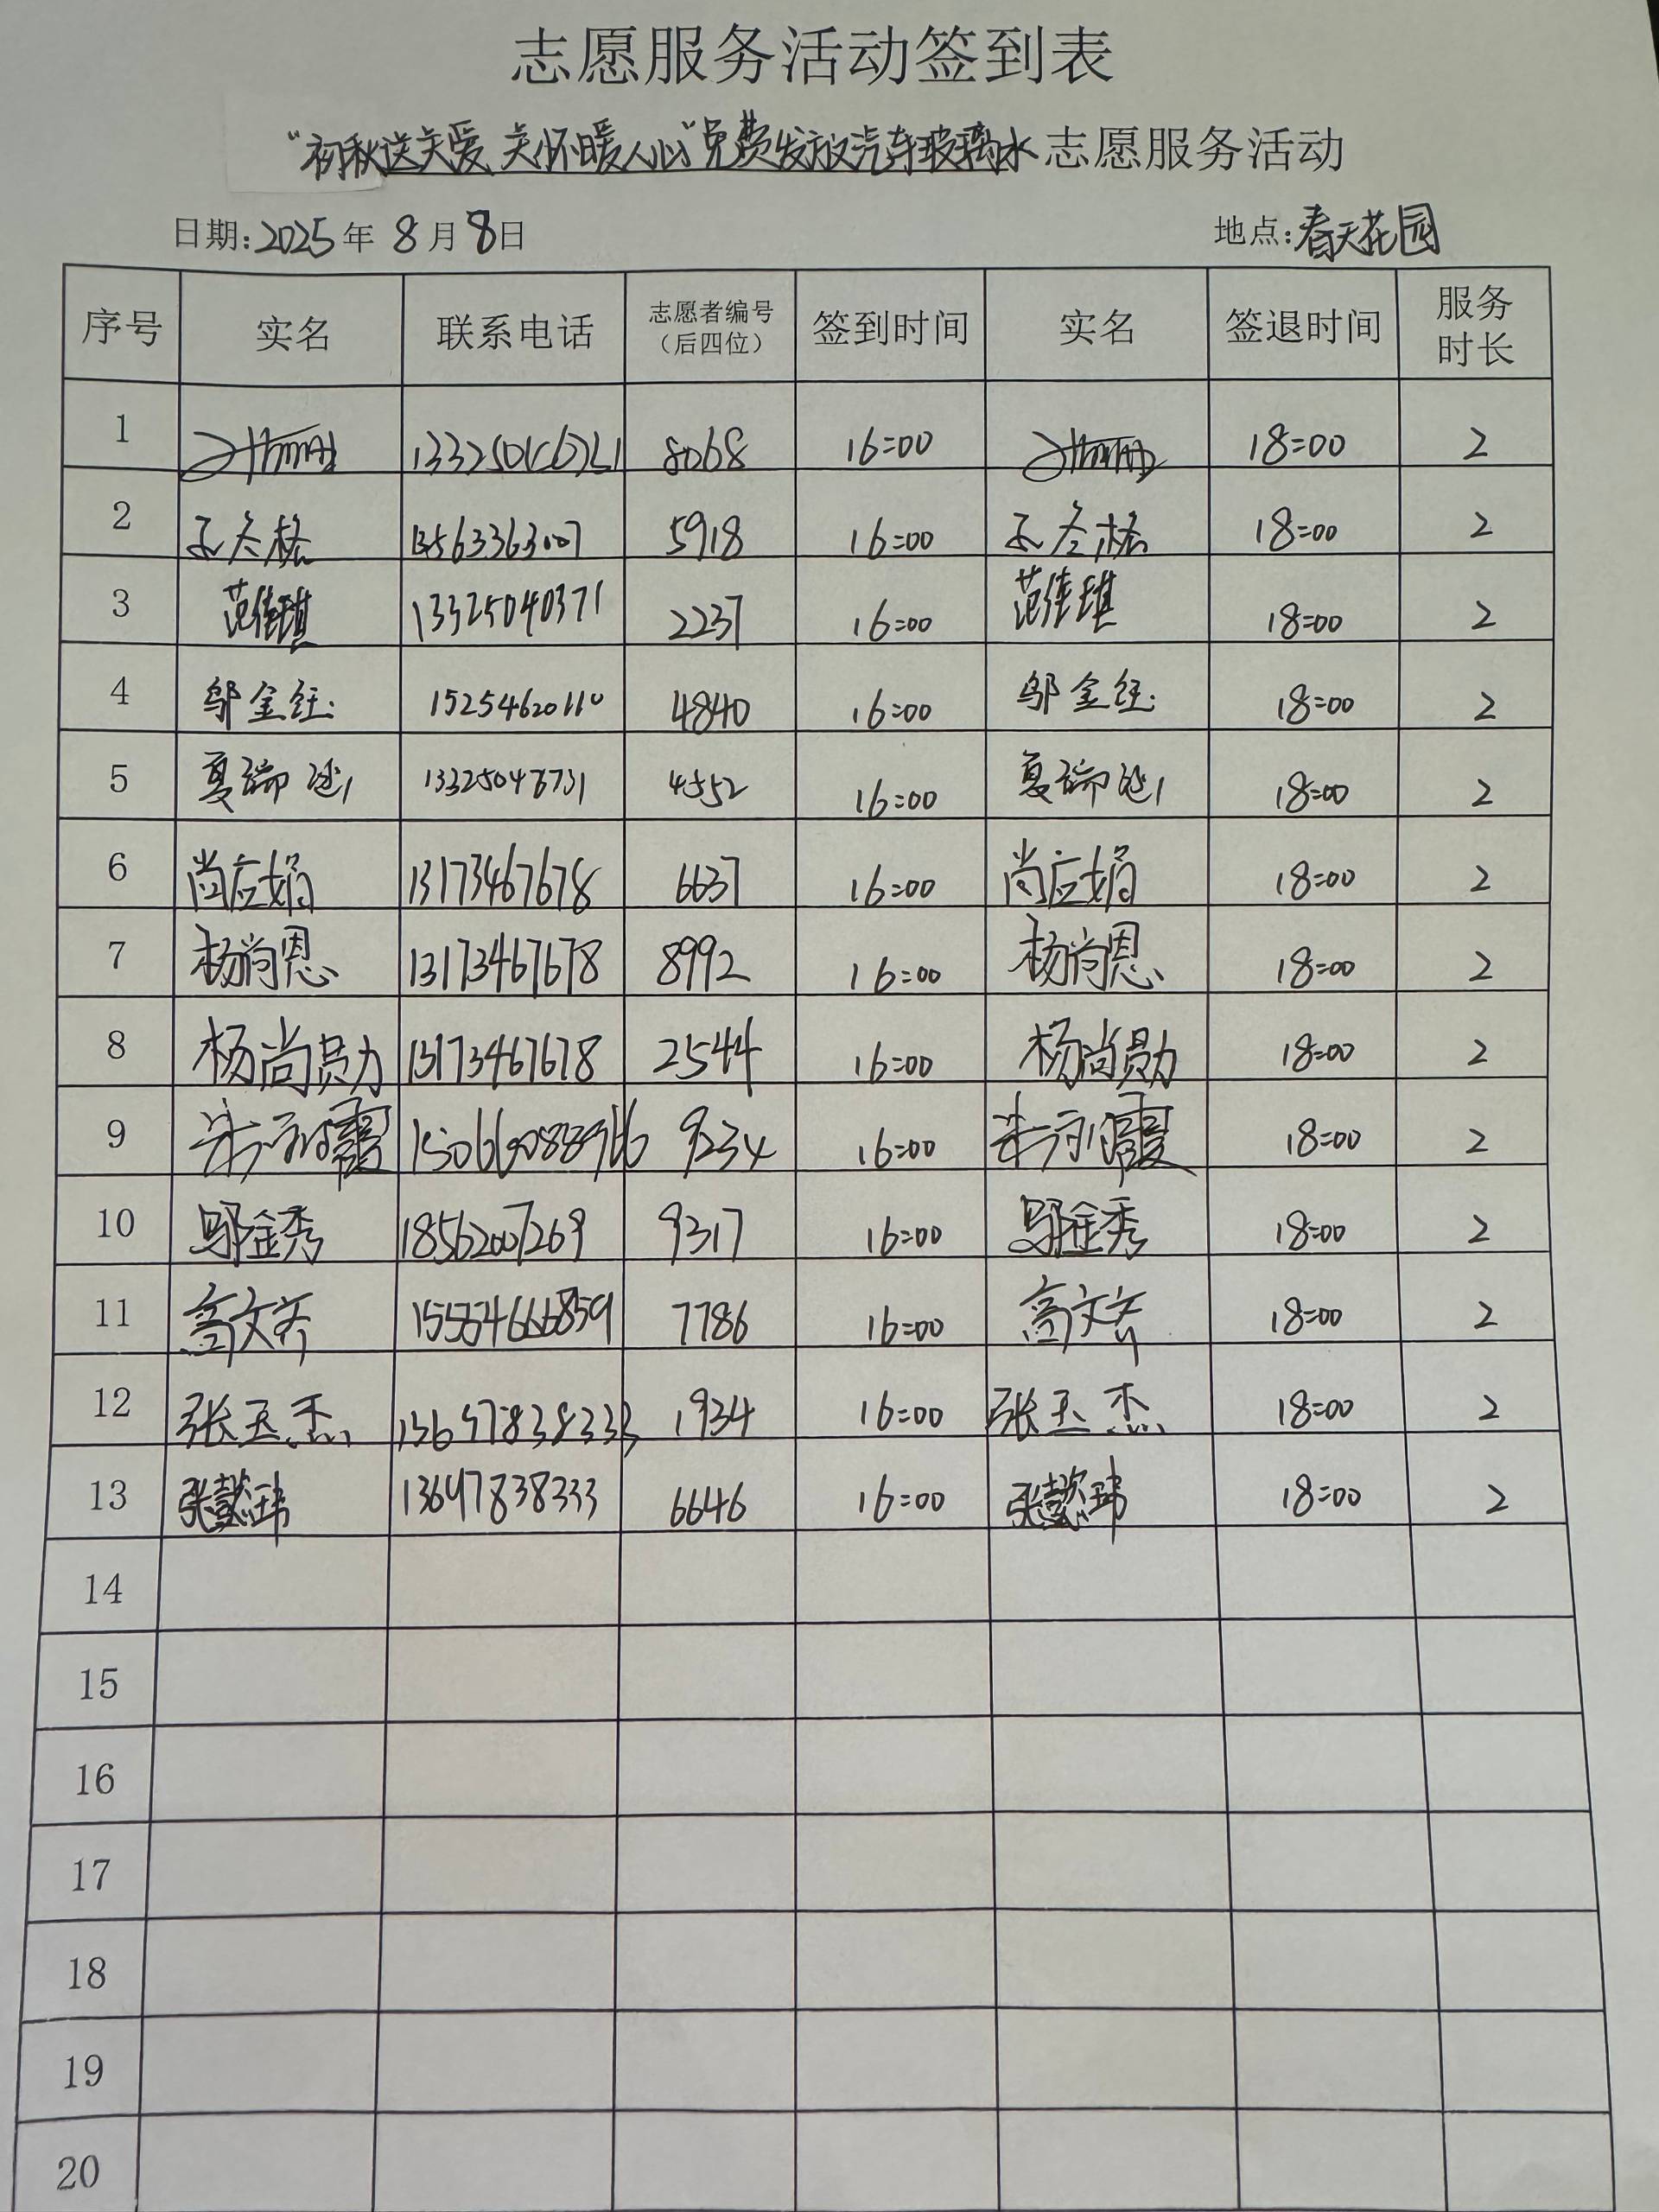 志愿服务活动签到表
“初秋送关爱 关怀暖人心”免费发放汽车玻璃水 志愿服务活动
日期:2025年 8 月 8日 地点:春天花园
序号 实名 联系电话 志愿者编号（后四位） 签到时间 实名 签退时间 服务时长
1 8068 16:00 18:00 2
2 5918 16:00 18:00 2
3 范佳琪 13325040371 2237 16:00 范佳琪 18:00 2
4 邬金钰 15254620110 4840 16:00 邬金钰 18:00 2
5 夏瑞 4552 16:00 夏瑞 18:00 2
6 尚应娟 13173467678 6637 16:00 尚应娟 18:00 2
7 杨尚恩 13173467678 8992 16:00 杨尚恩 18:00 2
8 杨尚勋 13173467678 2544 16:00 杨尚勋 18:00 2
9 朱永霞 9234 16:00 朱永霞 18:00 2
10 邬金秀 18562007269 9317 16:00 邬金秀 18:00 2
11 高文齐 7786 16:00 高文齐 18:00 2
12 张玉杰 1934 16:00 张玉杰 18:00 2
13 张懿玮 13647838333 6646 16:00 张懿玮 18:00 2
14
15
16
17
18
19
20